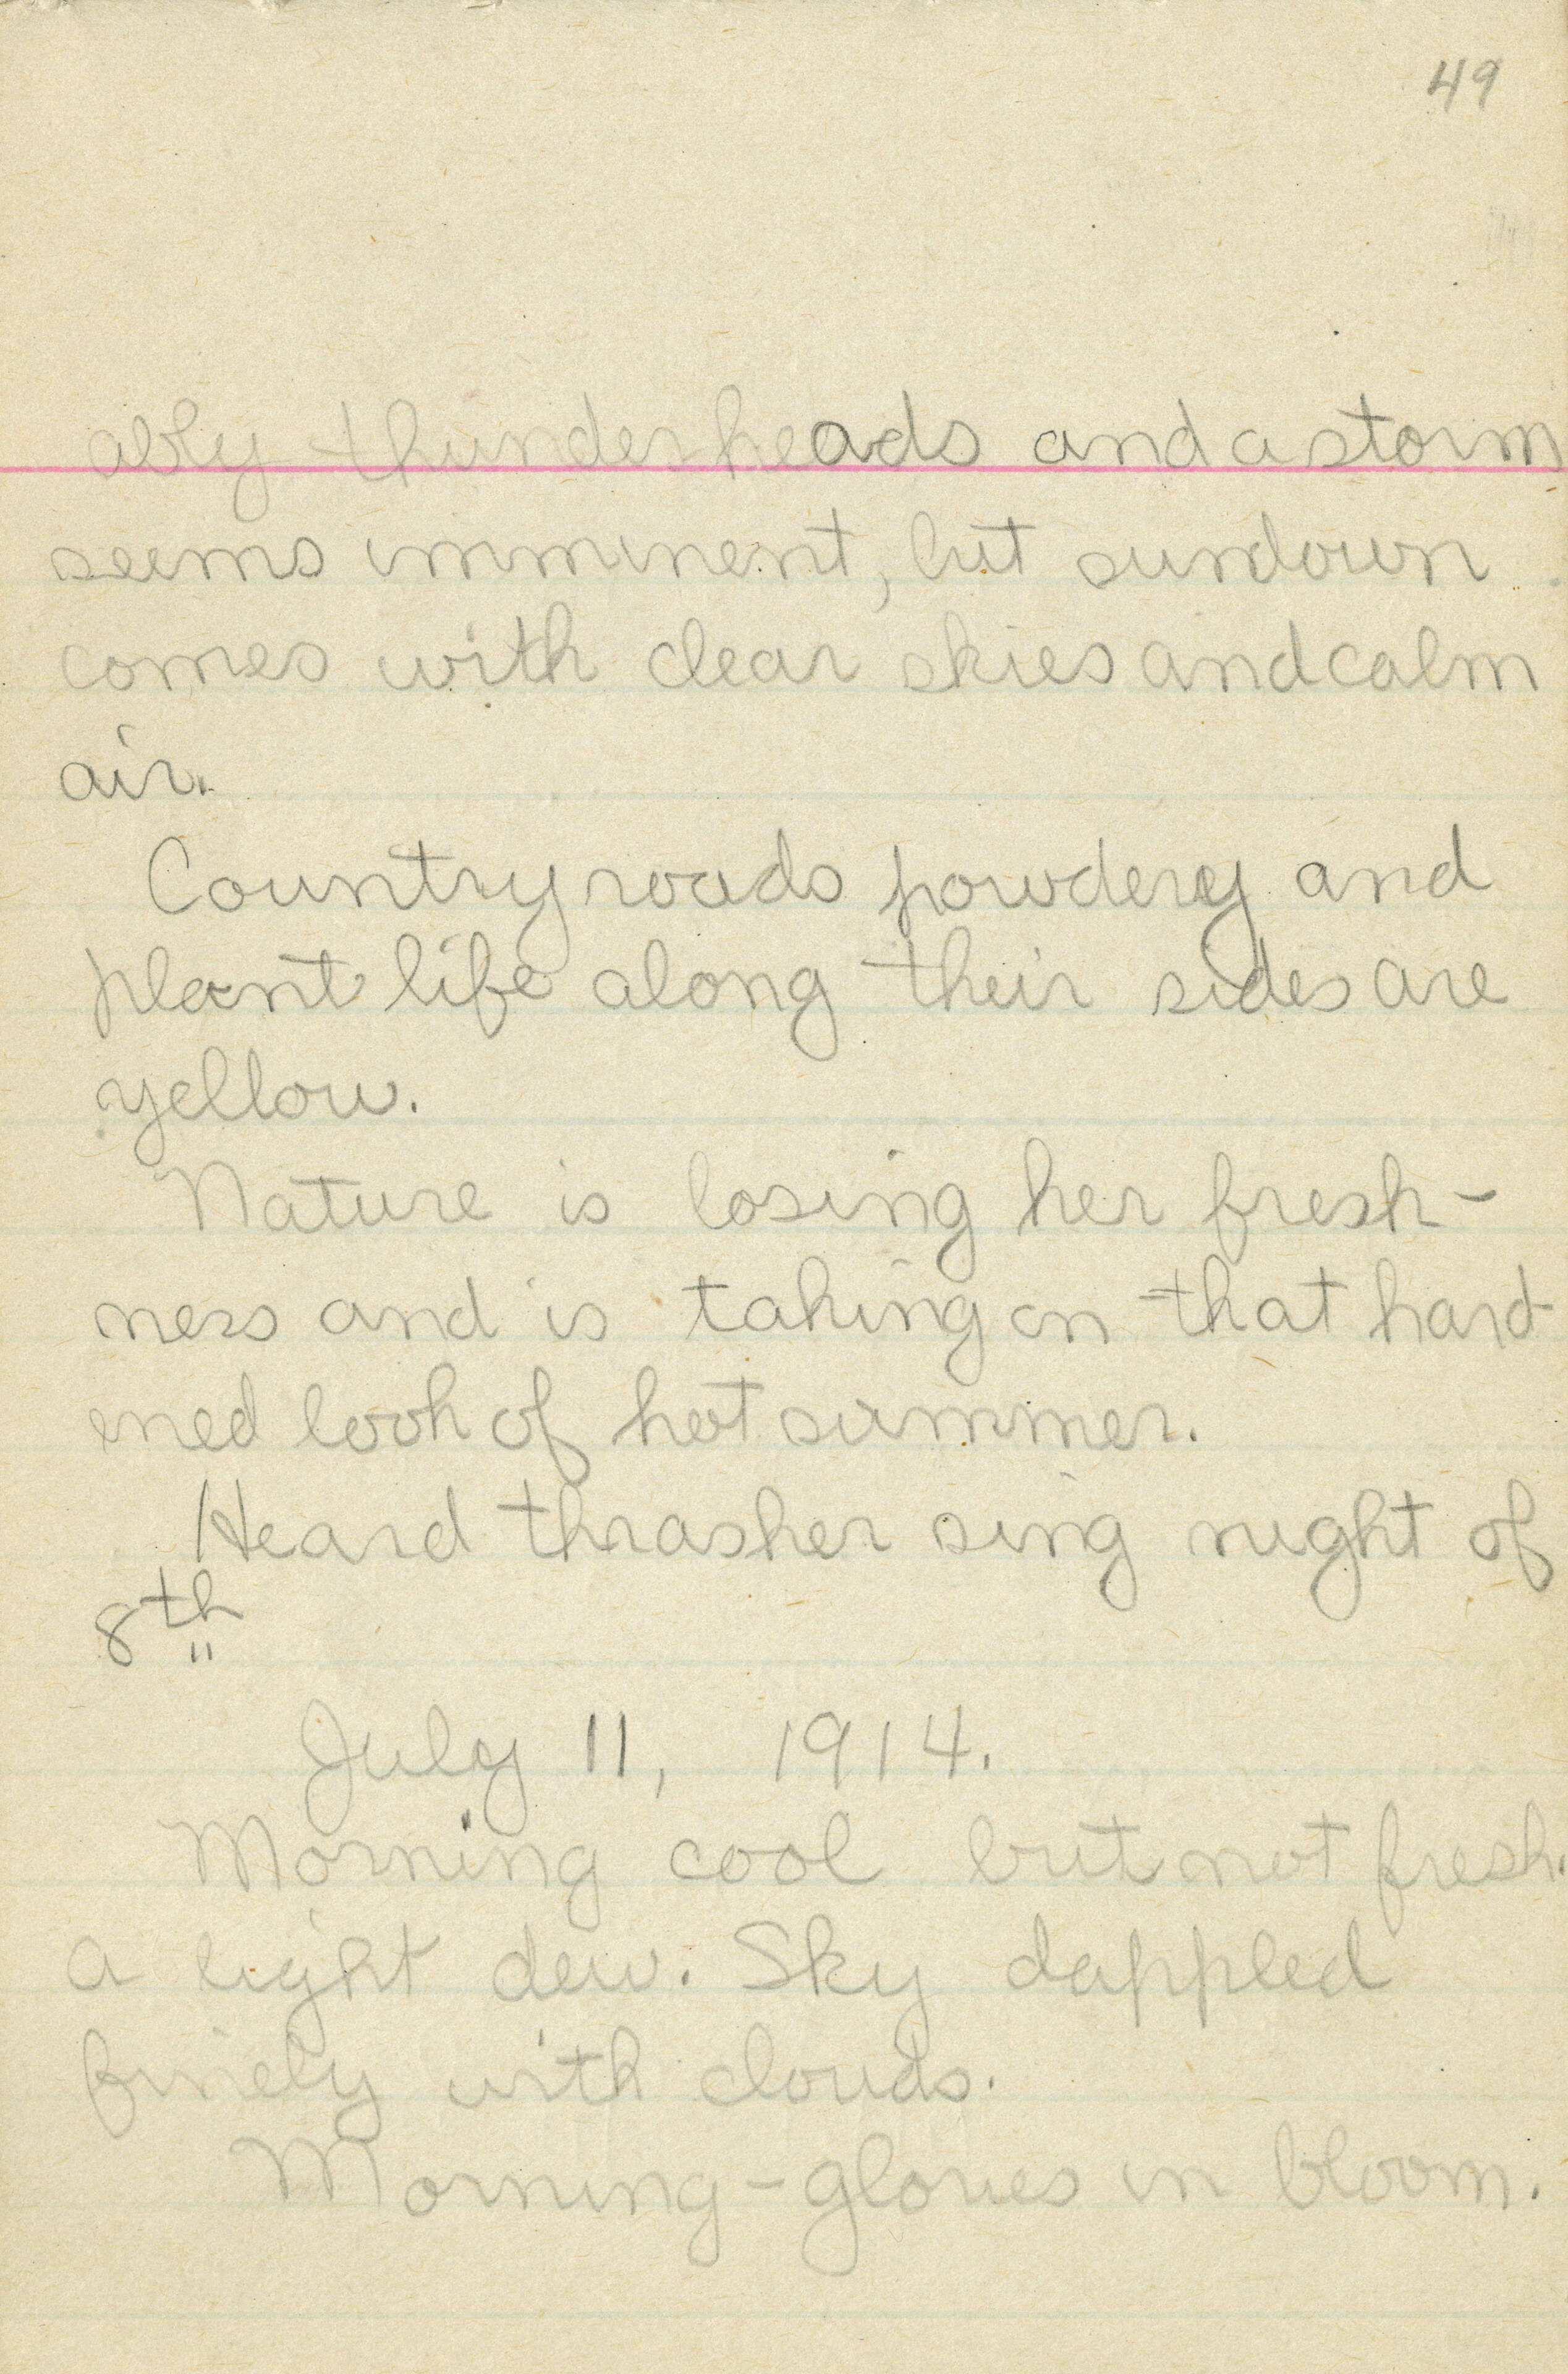 49
ably thunderheads and a storm
seems imminent, but sundown
comes with clear skies and calm
air.
Country roads powdery and
plant life along their sides are
yellow.
Nature is losing her fresh-
ness and is taking on that hard-
ened look of hot summer.
Heard thrasher sing night of
8th
July 11, 1914.
Morning cool but not fresh.
a light dew. Sky dappled
finely with clouds.
Morning-glories in bloom.